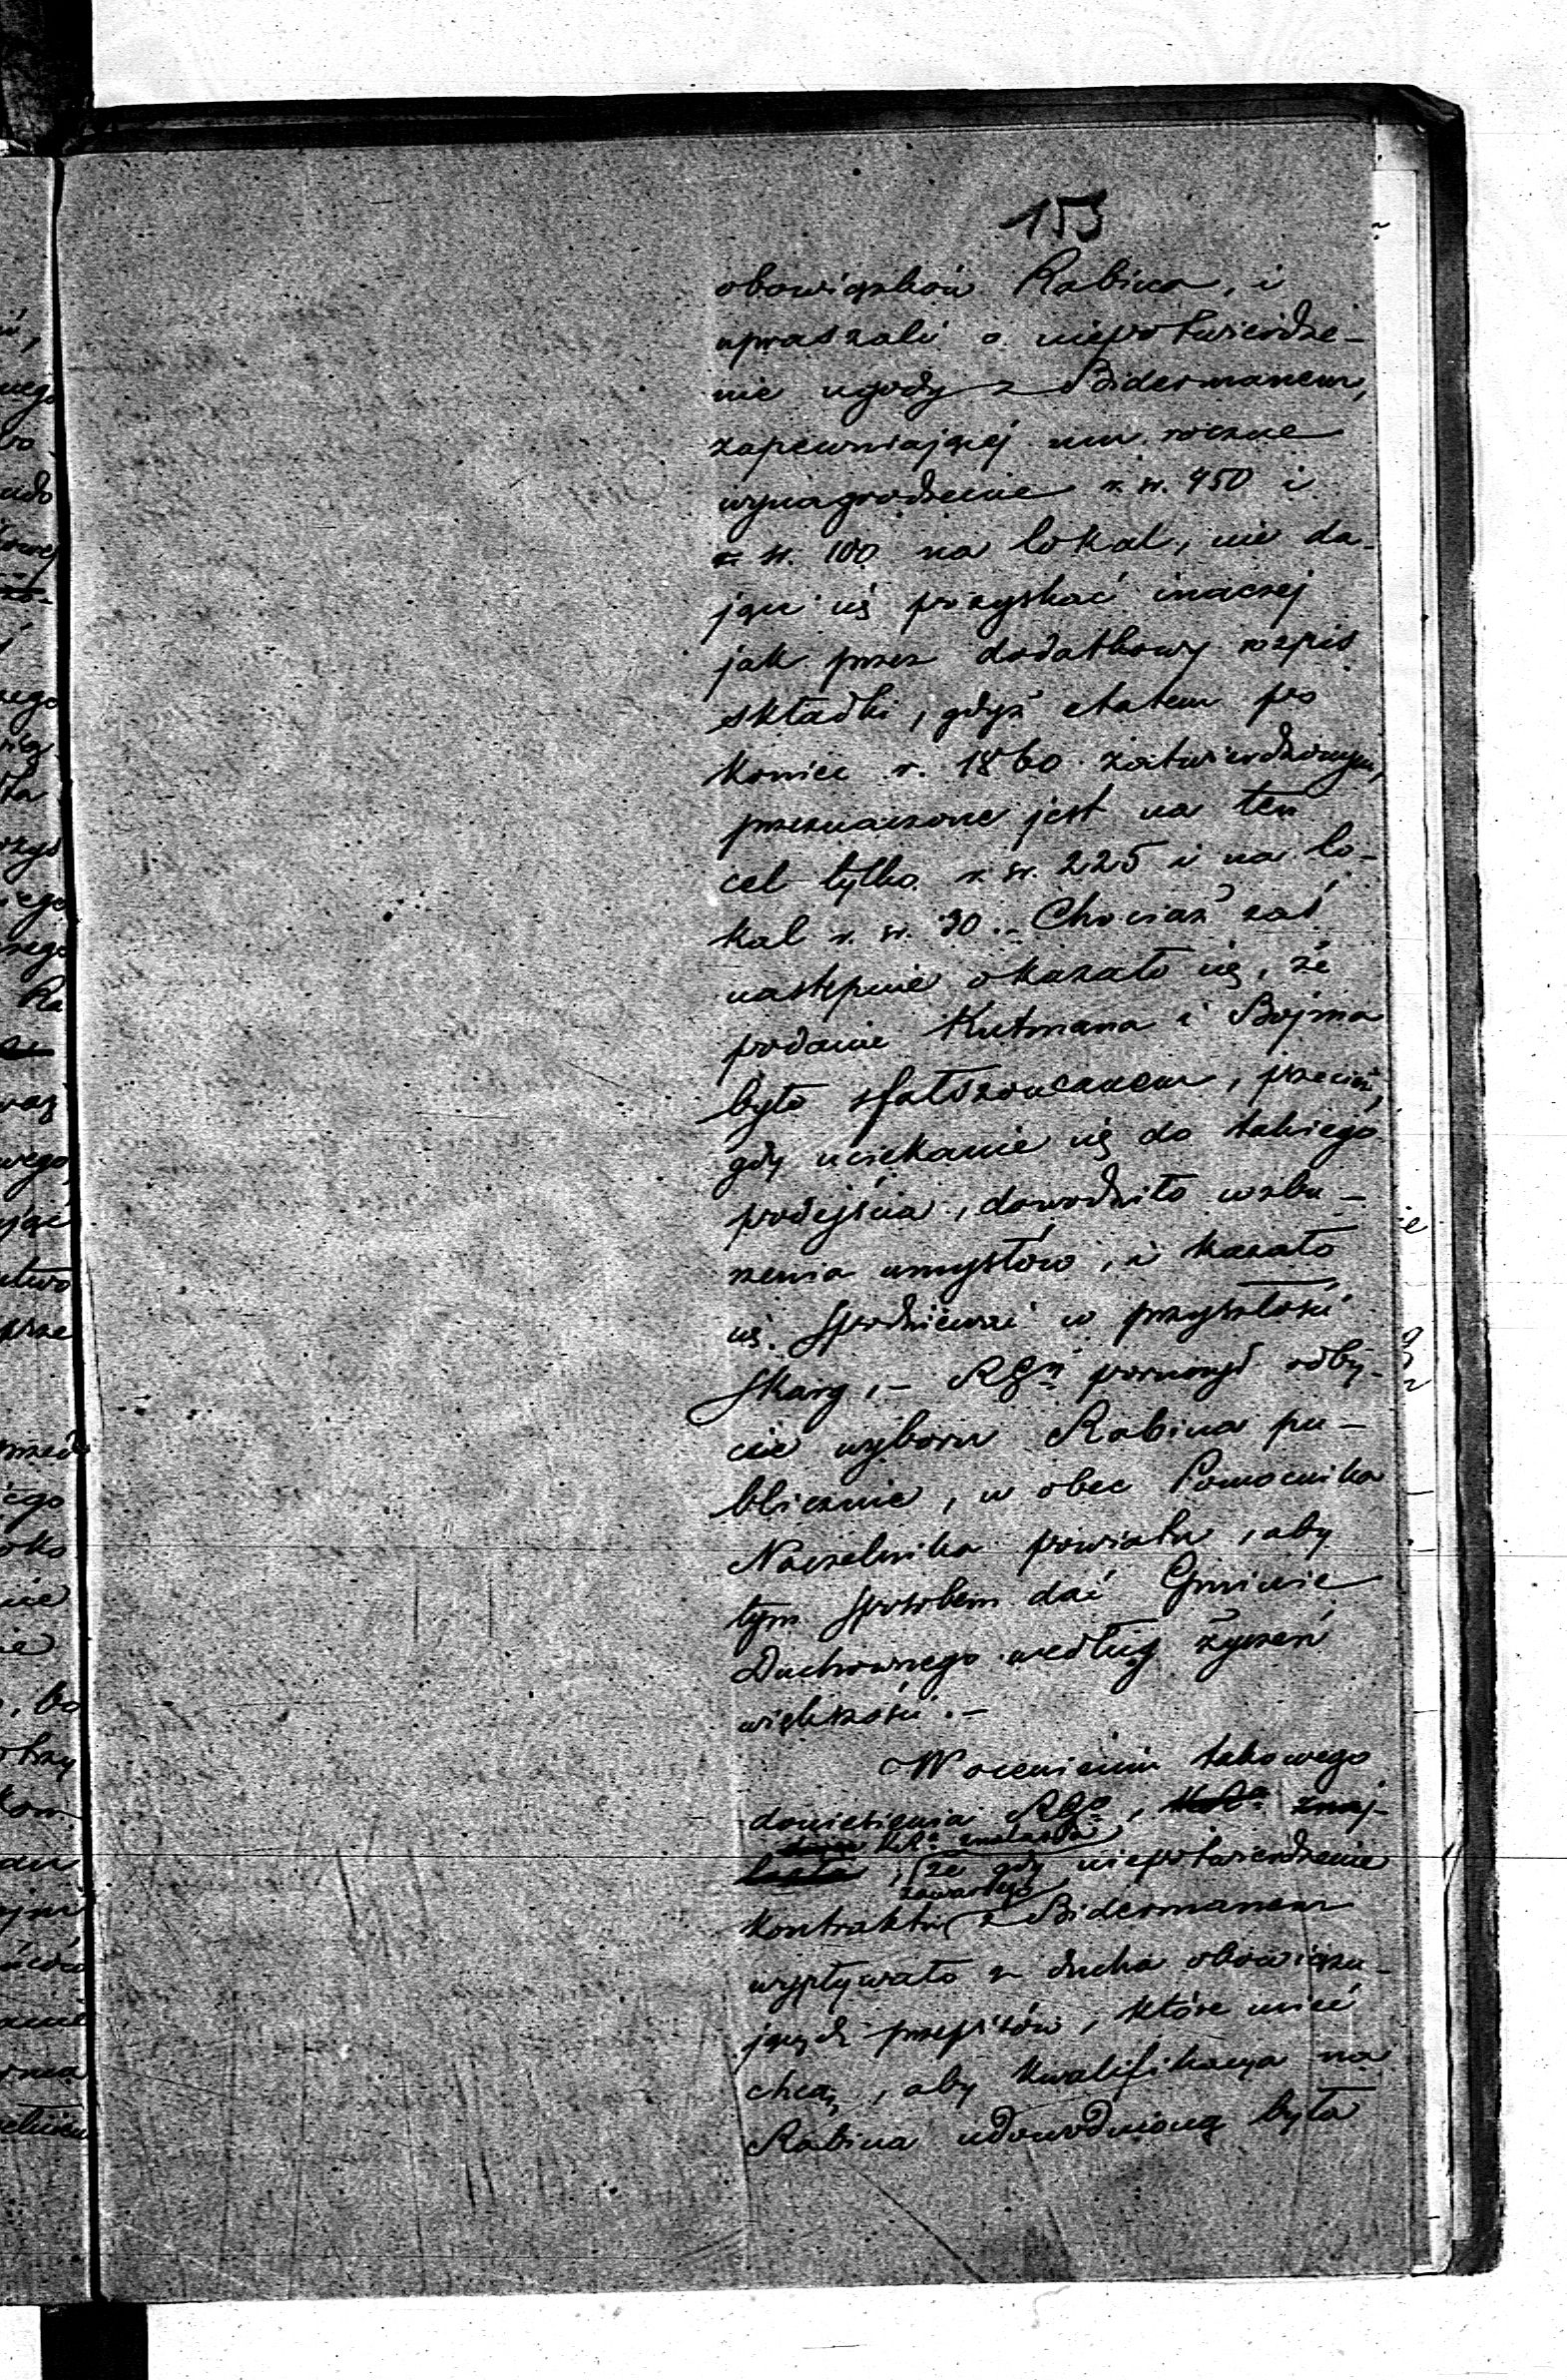 153
obowiązków Rabina, i
upraszali o niepotwierdze-
nie ugody z Bidermanem,
zapewniającej mu roczne
wynagrodzenie r. sr. 450 i
r. sr. 100 na lokal, nie da-
jącu się pozyskać inaczej
jak przez dodatkowy rozpis
składki, gdyż etatem po
koniec r. 1860 zatwierdzonym,
przeznaczone jest na ten
cel tylko r. sr. 225 i na lo-
kal r. sr. 30.- Chociaż zaś
następnie okazało się, że
podanie Kutmana i Bojma
było sfałszowanem, przecież,
gdy uciekanie się do takiego
podejścia, dowodziło wzbu-
rzenia umysłów, i kazało
się spodziewać w przyszłości
skarg, - RGn poruczył odby-
cie wyboru Rabina pu-
blicznie, w obec Pomocnika
Naczelnika powiatu, aby
tym sposobem dać Gminie
Duchownego według życzeń
większości.-
W ocenieniu takowego
doniesienia RGo, znaj-
znalazła
że gdy niepotwierdzenie
zawartego
kontraktu z Bidermanem
wypływało z ducha obowiązu-
jących przepisów, które mieć
chcą, aby kwalifikacya na
Rabina udowodnioną była